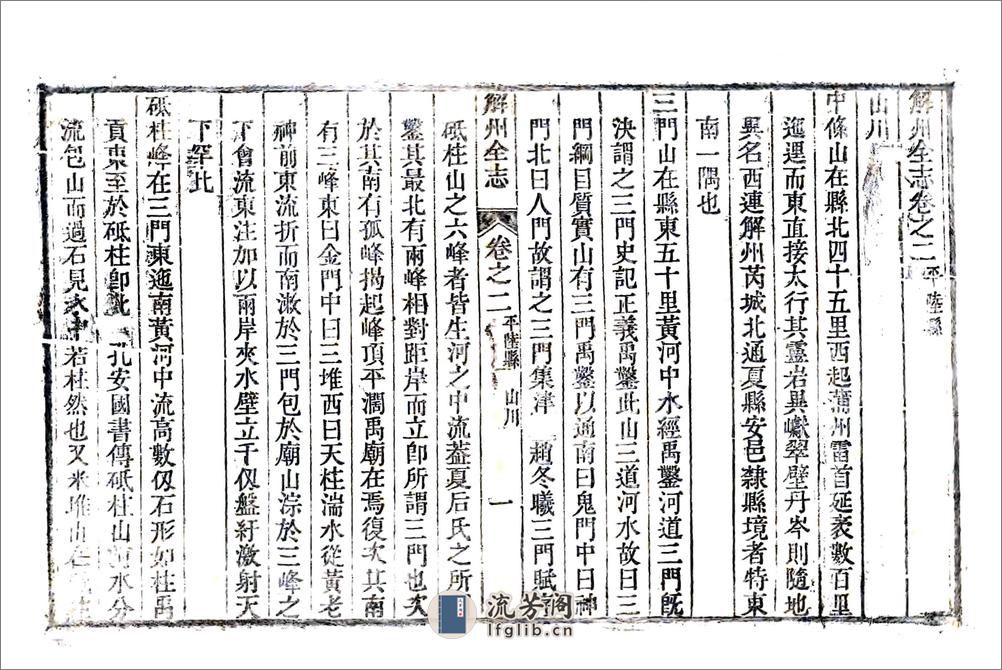 解州全志卷之二平陸縣
山川
中條山在縣北四十五里西起蒲州雷首延袤數百里
迤邐而東直接太行其靈岩異巘翠壁丹岑則隨地
異名西連解州芮城北通夏縣安邑隸縣境者特東
南一隅也
三門山在縣東五十里黃河中水經禹鑿河道三門既
決謂之三門史記正義禹鑿此山三道河水故曰三
門綱目質實山有三門禹鑿以通南曰鬼門中曰神
門北曰人門故謂之三門集津 趙冬曦三門賦
解州全志 卷之二 平陸縣 山川 一
砥柱山之六峰者皆生河之中流蓋夏后氏之所
鑿其最北有兩峰相對距岸而立卽所謂三門也次
於其南有孤峰揭起峰頂平濶禹廟在焉復次其南
有三峰東曰金門中曰三堆西曰天柱湍水從黃老
神前東流折而南漱於三門包於廟山淙於三峰之
下會流東注加以兩岸夾水壁立千仭盤紆激射天
下罕比
砥柱峰在三門東迤南黃河中流高數仭石形如柱禹
貢東至於砥柱卽此 孔安國書傳砥柱山 河水分
流包山而過石見水中若柱然也又米堆山在
流芳阁
lfglib.cn